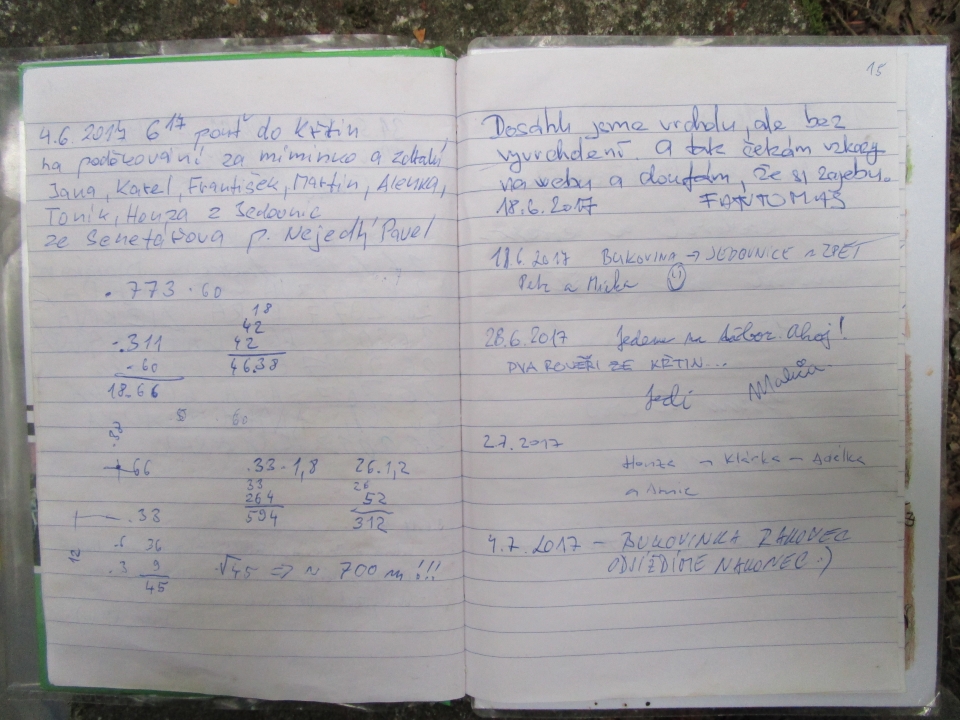 4.6.2017 6 17 pouť do Křtin
na poděkování za miminko a zdraví
Jana, Karel, František, Martin, Alenka,
Toník, Honza z Jedovnic
ze Senetářova p. Nejedlý Pavel
.773 . 60
18
42
-.311 42
- 60 46.38
18.66
60
+ 66 .33-1,8 26.1,2
33 26
264 52
.33 594 312
12
.6 36
.3 9 √45 => ~ 700 m !!!
45
15
Dosáhli jsme vrcholu, ale bez
vyvrcholení. A tak čekám vzkazy
na webu a doufám, že si zajebu.
18.6.2017 FANTOMAS
18.6.2017 BUKOVINA → JEDOVNICE A ZPĚT
Petr a Mirka
28.6.2017 Jedeme na tábor. Ahoj!
DVA ROVEŘI ZE KŘTIN...
Jedi
2.7.2017
Honza – Klárka – Adélka
4.7.2017 – BUKOVINKA RAKOVEC
ODJÍŽDÍME NAKONEC :)